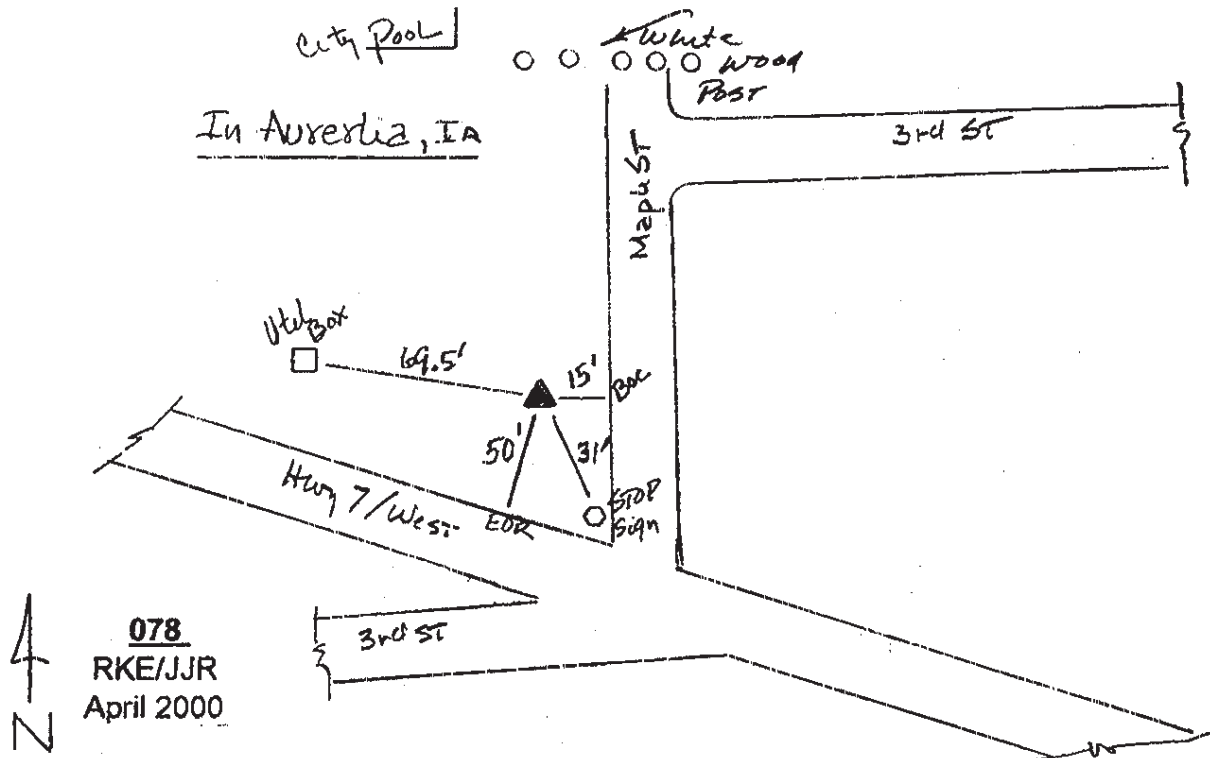 City Pool
White
Wood
Post
In Aurerlia, IA
3rd ST
Maple ST
Util Box
69.5'
15'
BOC
50'
31'
Hwy 7/West
EOR
STOP
Sign
3rd ST
078
RKE/JJR
April 2000
N